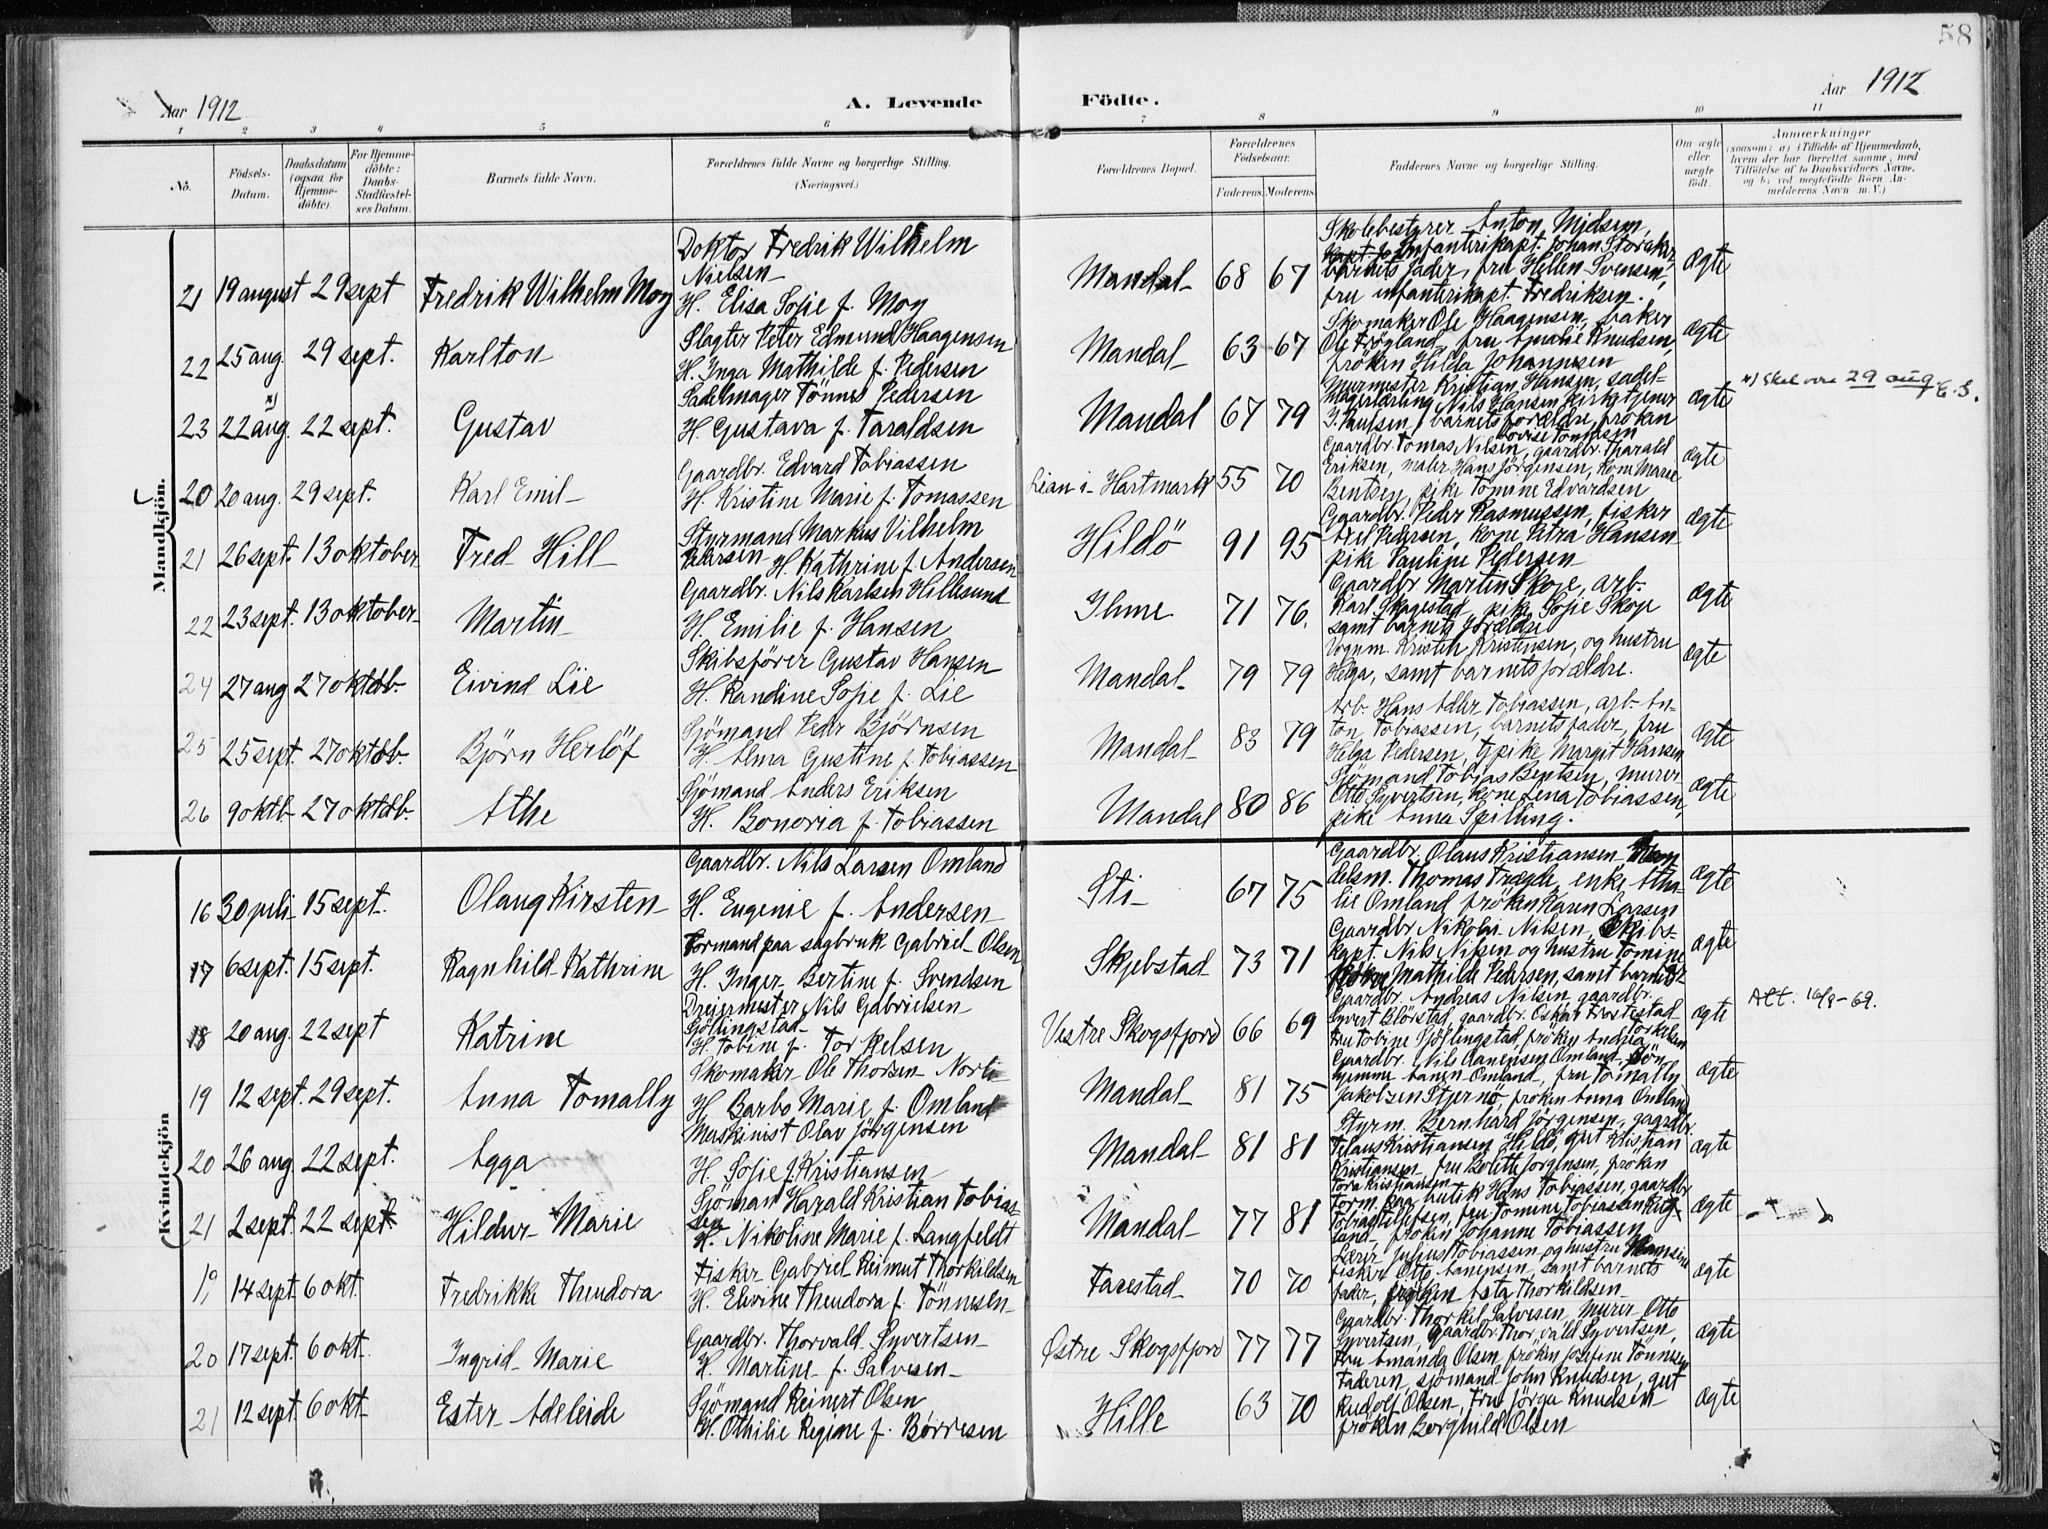 58
Aar 1912
A. Levende
Födte.
Aar 1912
1 2 3 4 5 6 7 8 9 10 11
No.
Födsels-
Datum.
Daabsdatum
(ogsaa for
Hjemme-
döbte).
For Hjemme-
döbte:
Daabs-
Stadfæstel-
ses Datum.
Barnets fulde Navn.
Forældrenes fulde Navne og borgerlige Stilling.
(Næringsvei.)
Forældrenes Bopæl.
Forældrenes
Födselsaar.
Faderens. Moderens.
Faddernes Navne og borgerlige Stilling.
Om ægte
eller
uægte
födt.
Anmærkninger
(saasom: a) i Tilfælde af Hjemmedaab,
hvem der har forrettet samme, med
Tilföielse af to Daabsvidners Navne,
og b) ved uegtefödte Börn An-
melderens Navn m. V.)
Mandkjön.
21 19 august 29 sept Fredrik Wilhelm Moy
Doktor Fredrik Wilhelm
Nielsen
H. Elisa Sofie f. Moy
Mandal 68 67
Skolebestyrer Anton Mjelsem,
Infanterikapt. Johan Storaker
barnets fader, fru Hellen Svensen,
fru infanterikapt. Fredriksen.
ægte
22 25 aug. 29 sept. Karlton
Slagter Peter Edmund Haagensen
H. Inga Mathilde f. Pedersen
Mandal 63 67
Skomaker Ole Haagensen, baker
Ole Frögland, fru Amalie Knudsen,
fröken Hilda Johannesen
ægte
23 22 aug. x) 22 sept. Gustav
Sadelmager Tönnes Pedersen
H. Gustava f. Taraldsen
Mandal 67 79
Murmester Kristian Hansen, sadel-
magerlærling Nils Hansen Kirketjener
J. Paulsen, barnets forældre, fröken
Lovise Tönnesen
ægte
x) Skal være 29 aug. E. S.
20 20 aug. 29 sept. Karl Emil
Gaardbr. Edvard Tobiassen
H. Kristine Marie f. Tomassen
Lian i Hartmark 55 70
Gaardbr. Tomas Nilsen, gaardbr. Tharald
Eriksen, maler Hans Jörgensen, kone Marie
Bentsen, pike Tomine Edvardsen
ægte
21 26 sept. 13 oktober Fred Hill
Styrmand Markus Vilhelm
Pedersen H. Kathrine f. Andersen
Hildö 91 95
Gaardbr. Peder Rasmussen, fisker
Axel Pedersen, kone Petra Hansen
pike Pauline Pedersen
ægte
22 23 sept. 13 oktober Martin
Gaardbr. Nils Karlsen Hillesund
H. Emilie f. Hansen
Ihme 71 76.
Gaardbr. Martin Skoje, arb.
Karl Skagestad, pike Sofie Skoje
samt barnets forældre
ægte
24 27 aug 27 oktob. Eivind Lie
Skibsförer Gustav Hansen
H. Randine Sofie f. Lie
Mandal 79 79
Vognm. Kristen Kristensen, og hustru
Helga, samt barnets forældre.
ægte
25 25 sept. 27 oktob. Björn Herlöf
Sjömand Peder Björnsen
H. Alma Gustine f. Tobiassen
Mandal 83 79
Arb. Hans Adler Tobiassen, arb. An-
ton Tobiassen, barnets fader, fru
Helga Pedersen, tj. pike Margit Hansen
ægte
26 9 oktb 27 oktob. Athe
Sjömand Anders Eriksen
H. Bonoria f. Tobiassen
Mandal 80 86
Sjömand Tobias Bentsen, murer
Otto Syvertsen, kone Lena Tobiassen,
pike Anna Spilling.
ægte
Kvindekjön
16 30 juli 15 sept. Olaug Kirsten
Gaardbr. Nils Larsen Omland
H. Eugenie f. Andersen
Sti 67 75
Gaardbr. Olaus Kristiansen Han
delsm. Thomas Trægde, enke Atha-
lie Omland fröken Karen Larsen
ægte
17 6 sept. 15 sept. Ragnhild Kathrine
Formand paa sagbruk Gabriel Olsen
H. Inger Bertine f. Svendsen
Skjebstad 73 71
Gaardbr. Nikolai Nilsen, Skibs-
kapt. Nils Nilsen og hustru Tomine
Mathilde Pedersen, samt barnets
ægte
18 20 aug. 22 sept Katrine
Dreiermester Nils Gabrielsen
Sjöllingstad
H. Tobine f. Torkelsen
Vestre Skogsfjord 66 69
Gaardbr. Andreas Nilsen, gaardbr.
Syvert Blörstad, gaardbr. Oskar Trestestad
fru Tobine Sjöllingstad, fröken Andrea Torkelsen
ægte
Att. 16/8-69.
19 12 sept. 29 sept. Anna Tomally
Skomaker Ole Thorsen
H. Barbo Marie f. Omland
Mandal 81 75
Gaardbr. Nils Aanensen Omland, sön
hjemme Aanen Omland, fru Tomally
Jakobsen Stjernö, fröken Anna Omland
ægte
20 26 aug 22 sept. Agga
Maskinist Olav Jörgensen
H. Sofie f. Kristiansen
Mandal 81 81
Styrm. Bernhard Jörgensen, gaardbr.
Kristiansen Hildö, gut Kristian
Kristiansen fru Bolette Jörgensen, fröken
Tora Kristiansen
ægte
21 2 sept. 22 sept Hildur Marie
Sjöman Harald Kristian Tobias-
sen
H. Nikoline Marie f. Langfeldt
Mandal 77 81
Form. paa butik Hans Tobiassen, gaardbr.
fru Tomine Tobiassen Aug-
land, fröken Johanne Tobiassen
ægte
19 14 sept 6 okt. Fredrikke Theodora
Fisker Gabriel Reimut Thorkildsen
H. Elevine Theodora f. Tönnesen
Farestad 70 70
Lærer Julius Tobiassen og hustru Hansine
fisker Otto Aanensen, samt barnets
fader, fröken Asta Thorkildsen
ægte
20 17 sept. 6 okt. Ingrid Marie
Gaardbr. Thorvald Syvertsen
H. Martine f. Salvesen
Østre Skogsfjord 77 77
Gaardbr. Thorkel Salvesen, murer Otto
Syvertsen, gaardbr. Thorvald Syvertsen,
fru Amanda Olsen, fröken Josefine Tönnesen
ægte
21 12 sept. 6 okt Ester Adeleide
Sjömand Reinert Olsen
H. Othilie Regine f. Börresen
Hille 63 70
Faderen, sjömand John Knudsen, gut
Rudolf Olsen, fru Jörga Knudsen
fröken Borghild Olsen
ægte